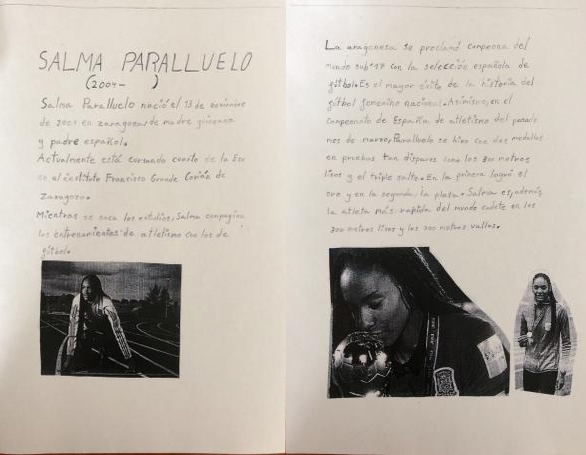 SALMA PARALLUELO
(2004-        )
Salma Paralluelo nació el 13 de noviembre
de en zaragoza de madre guineana
y padre español.
Actualmente está cursando cuarto de la Eso
en el instituto Francisco Grande Covián de
Zaragoza.
Mientras se saca los estudios, Salma compagina
los entrenamientos de atletismo con los de
fútbol.
La aragonesa se proclamó campeona del
mundo sub-17 con la selección española de
fútbol. Es el mayor éxito de la historia del
fútbol femenino nacional. Asimismo, en el
Campeonato de España de atletismo del pasado
mes de marzo, Paralluelo se hizo con dos medallas
en pruebas tan dispares como los 300 metros
lisos y el triple salto. En la primera logró el
oro y en la segunda, la plata. Salma es, además,
la atleta más rapida del mundo cadete en los
300 metros lisos y los 300 metros vallas.